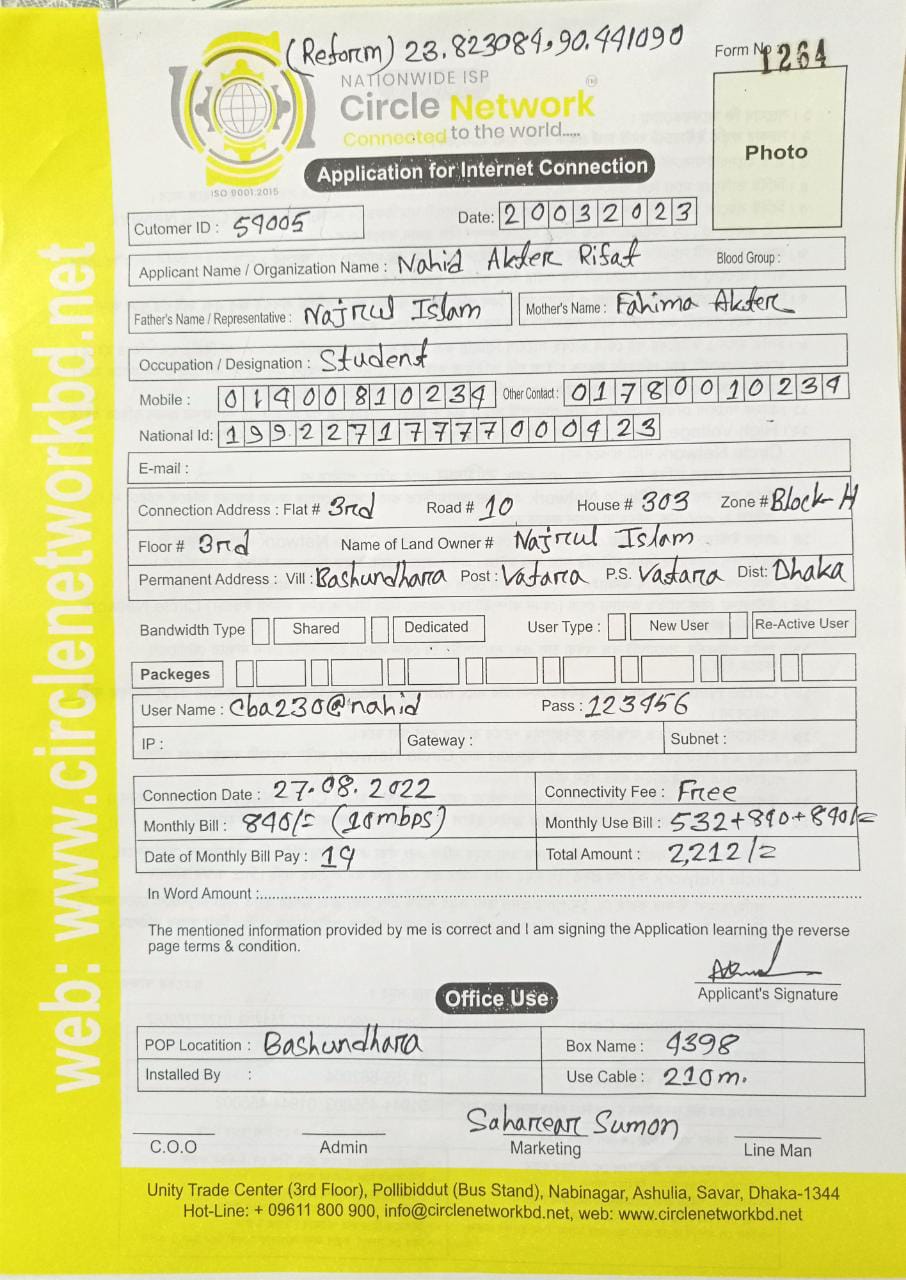 (Reform) 23.823084,90.441090
Form No 1264
NATIONWIDE ISP
Circle Network
Connected to the world.....
ISO 9001:2015
Photo
Application for Internet Connection
Cutomer ID : 59005
Date: 20032023
Applicant Name / Organization Name : Nahid Akter Rifat Blood Group :
Father's Name / Representative : Najrul Islam Mother's Name : Fahima Akter
Occupation / Designation : Student
Mobile : 01400810234 Other Contact : 01780010234
National Id: 19922717777000423
E-mail :
Connection Address : Flat # 3rd Road # 10 House # 303 Zone # Block-H
Floor # 3rd Name of Land Owner # Najrul Islam
Permanent Address : Vill : Bashundhara Post : Vatara P.S. Vatara Dist: Dhaka
Bandwidth Type Shared Dedicated User Type : New User Re-Active User
Packeges
User Name : Cba230@nahid Pass : 123456
IP : Gateway : Subnet :
Connection Date : 27.08.2022 Connectivity Fee : Free
Monthly Bill : 840/= (10mbps) Monthly Use Bill : 532+840+840/=
Date of Monthly Bill Pay : 14 Total Amount : 2,212/=
In Word Amount :
The mentioned information provided by me is correct and I am signing the Application learning the reverse
page terms & condition.
Applicant's Signature
Office Use
POP Locatition : Bashundhara Box Name : 4398
Installed By : Use Cable : 210m.
Saharear Sumon
C.O.O Admin Marketing Line Man
Unity Trade Center (3rd Floor), Pollibiddut (Bus Stand), Nabinagar, Ashulia, Savar, Dhaka-1344
Hot-Line: + 09611 800 900, info@circlenetworkbd.net, web: www.circlenetworkbd.net
web: www.circlenetworkbd.net